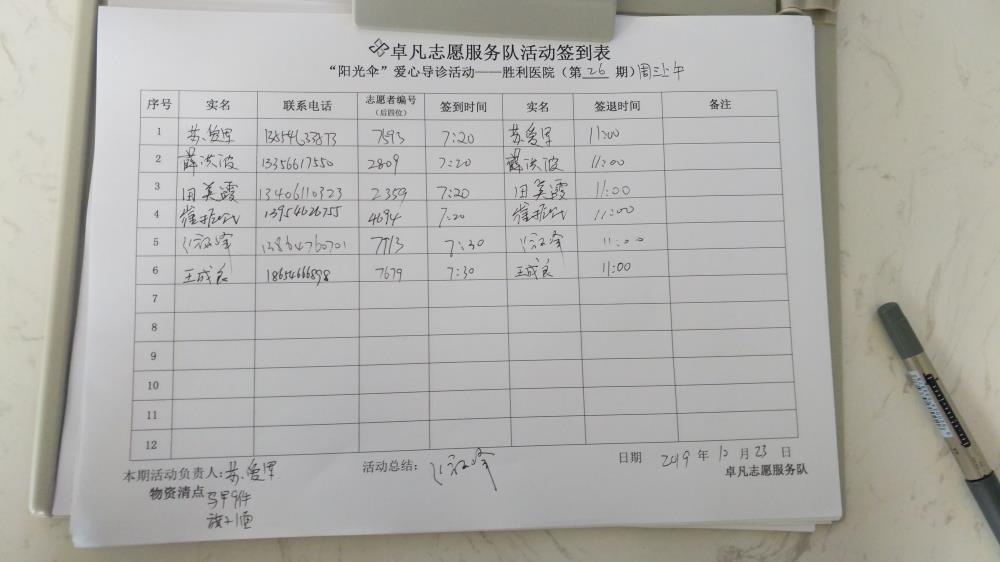 卓凡志愿服务队活动签到表
“阳光伞”爱心导诊活动——胜利医院（第 26 期）周三上午
序号 实名 联系电话 志愿者编号（后四位） 签到时间 实名 签退时间 备注
1 苏爱军 7593 7:20 苏爱军 11:00
2 薛洪波 13356617550 2809 7:20 薛洪波 11:00
3 田美霞 13406110323 2359 7:20 田美霞 11:00
4 13954626755 4694 7:20 11:00
5 13864760701 7:30 11:00
6 王成良 18654666898 7679 7:30 王成良 11:00
7
8
9
10
11
12
本期活动负责人：苏爱军 活动总结： 日期 2019 年 10 月 23 日
物资清点 马甲9件 卓凡志愿服务队
旗子1面